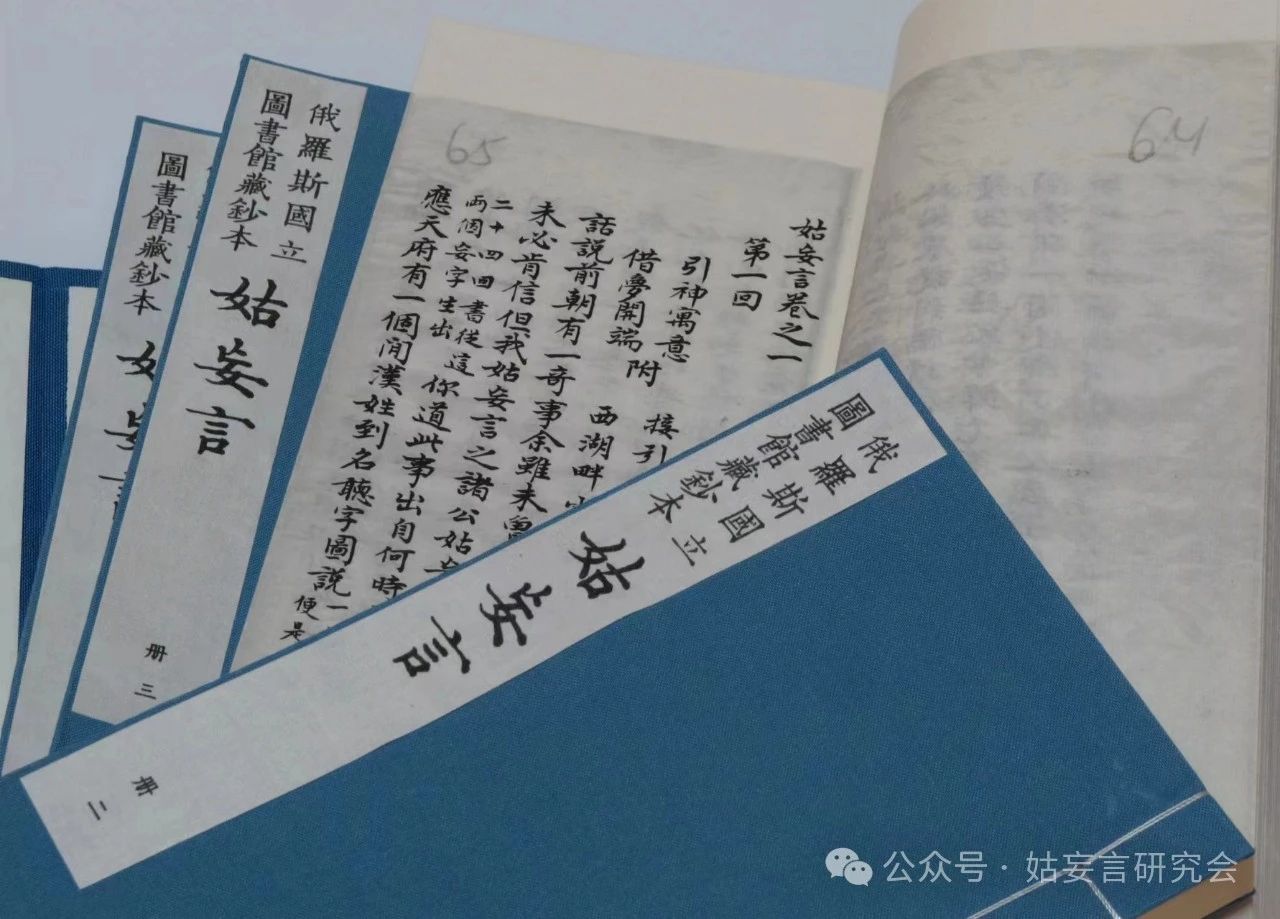 俄羅斯國立
圖書館藏鈔本
姑妄言
冊三
圖書館藏鈔本
65
64
姑妄言卷之一
第一回
引神寓意
借夢開端
附
接引
西湖畔
話說前朝有一奇事余雖未曾
未必肯信但我姑妄言之諸公姑妄
二十四回書從這
兩個妄字生出
你道此事出自何時
應天府有一個閒漢姓到名聽字圖說
便是
俄羅斯國立
圖書館藏鈔本
姑妄言
冊二
公众号·姑妄言研究会